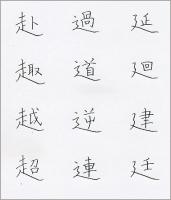 赴 過 延
趣 道 廻
越 逆 建
超 連 廷